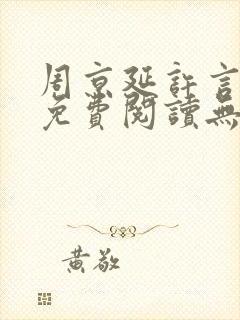 周京延許言
免費閱讀無
黃敬